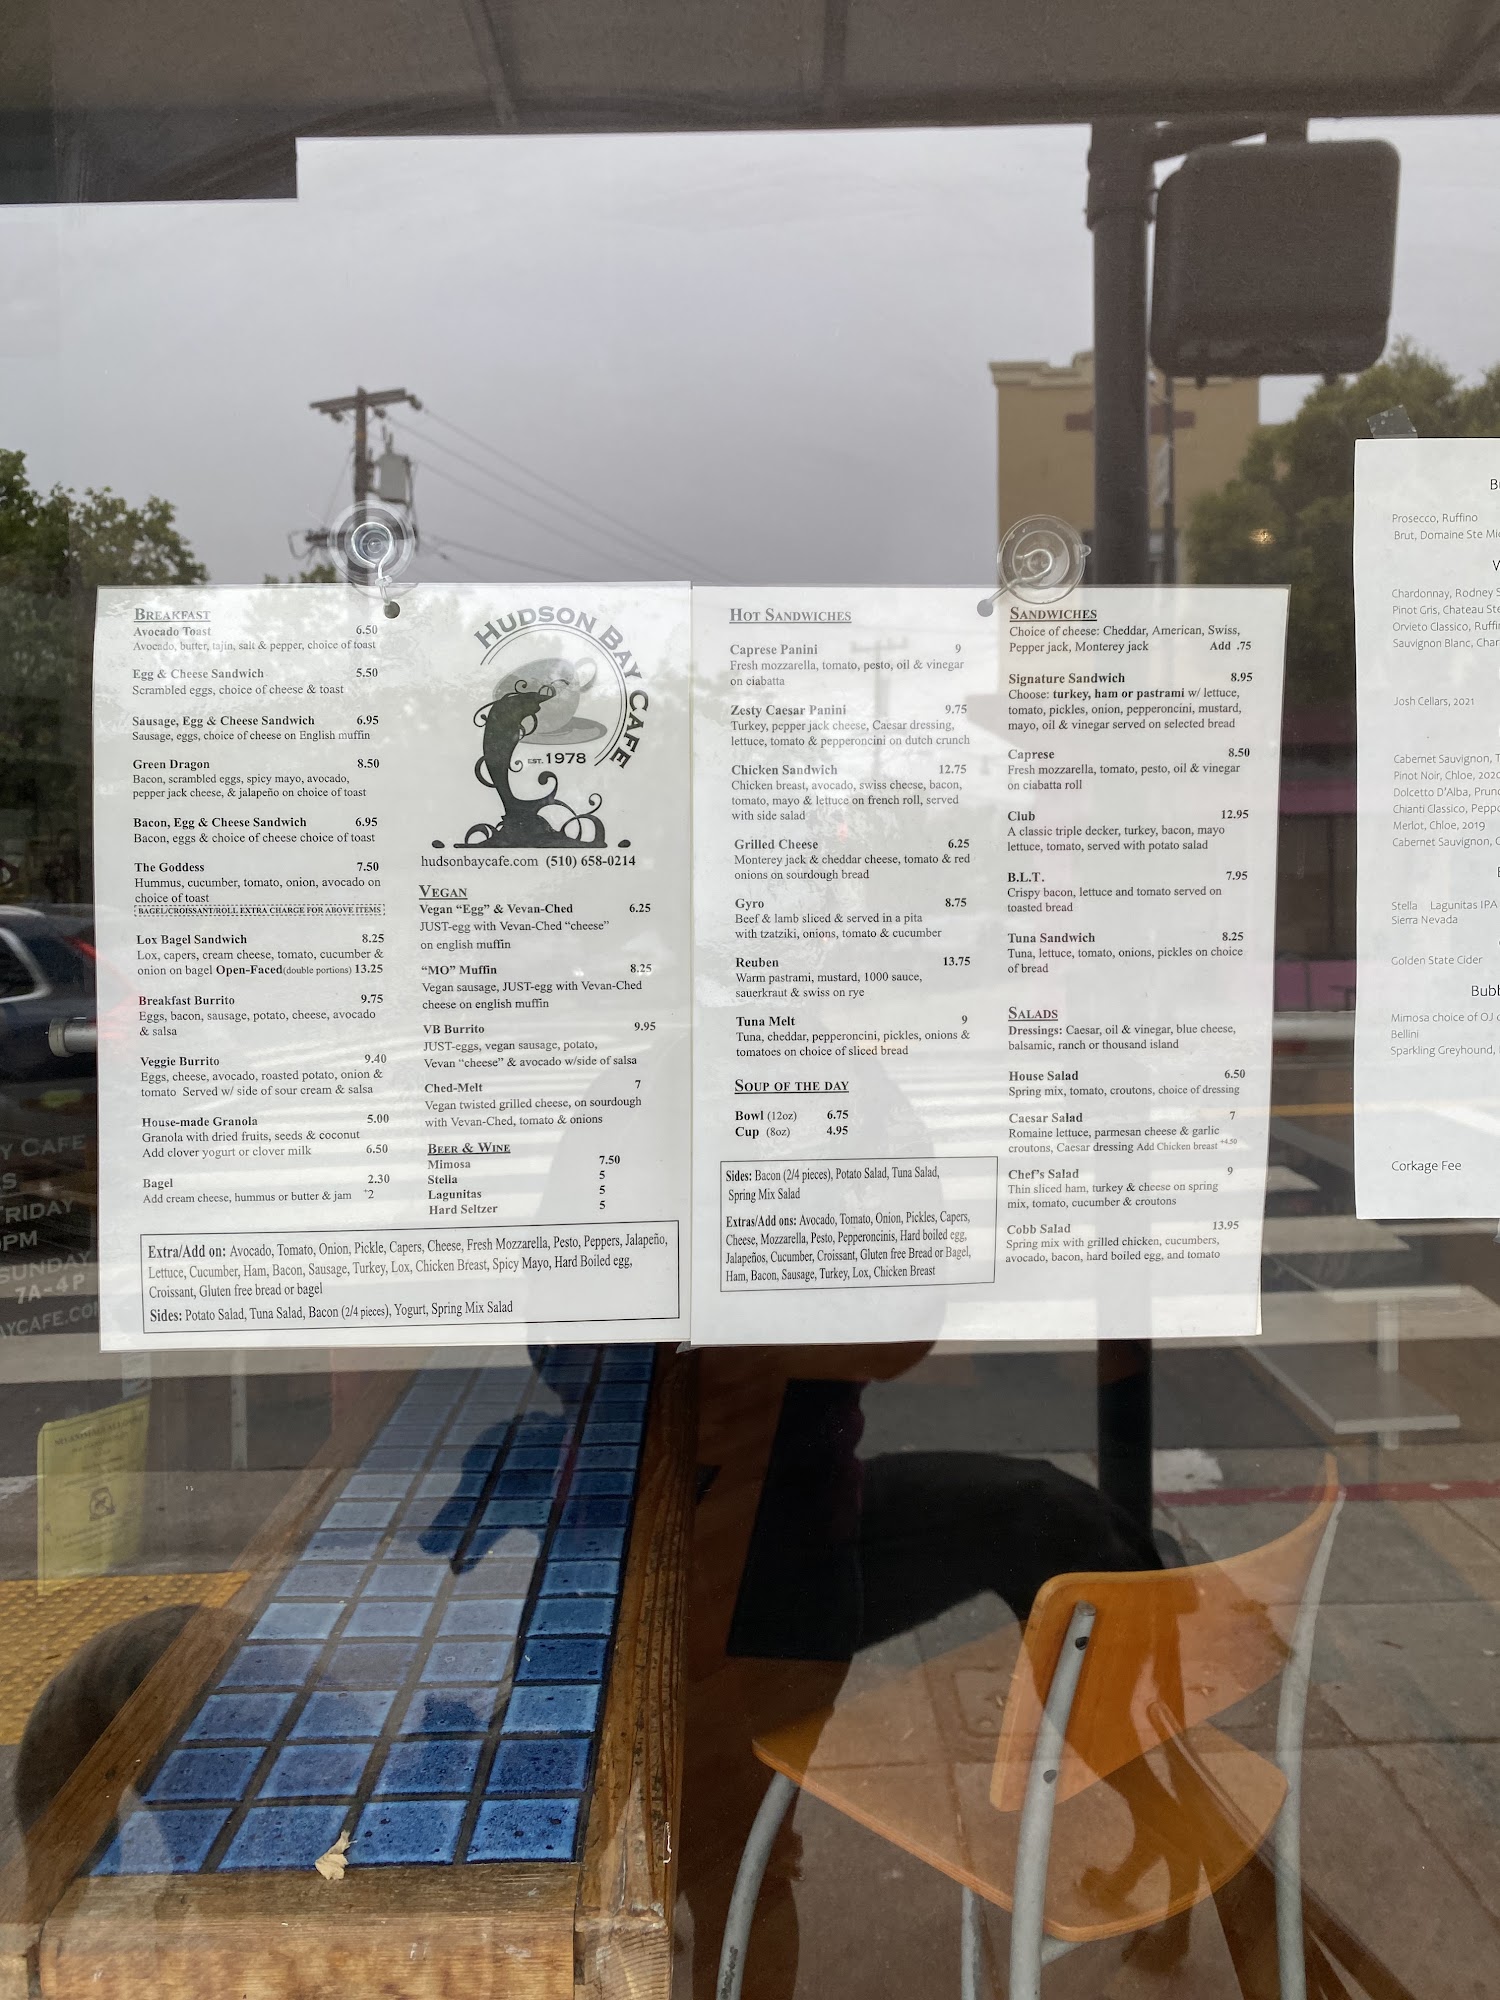 BREAKFAST
Avocado Toast 6.50
Avocado, butter, tajin, salt & pepper, choice of toast
Egg & Cheese Sandwich 5.50
Scrambled eggs, choice of cheese & toast
Sausage, Egg & Cheese Sandwich 6.95
Sausage, eggs, choice of cheese on English muffin
Green Dragon 8.50
Bacon, scrambled eggs, spicy mayo, avocado,
pepper jack cheese, & jalapeño on choice of toast
Bacon, Egg & Cheese Sandwich 6.95
Bacon, eggs & choice of cheese choice of toast
The Goddess 7.50
Hummus, cucumber, tomato, onion, avocado on
choice of toast
BAGEL/CROISSANT/ROLL EXTRA CHARGE FOR ABOVE ITEMS
Lox Bagel Sandwich 8.25
Lox, capers, cream cheese, tomato, cucumber &
onion on bagel Open-Faced(double portions) 13.25
Breakfast Burrito 9.75
Eggs, bacon, sausage, potato, cheese, avocado
& salsa
Veggie Burrito 9.40
Eggs, cheese, avocado, roasted potato, onion &
tomato Served w/ side of sour cream & salsa
House-made Granola 5.00
Granola with dried fruits, seeds & coconut
Add clover yogurt or clover milk 6.50
Bagel 2.30
Add cream cheese, hummus or butter & jam +2
HUDSON BAY CAFE
EST. 1978
hudsonbaycafe.com (510) 658-0214
VEGAN
Vegan “Egg” & Vevan-Ched 6.25
JUST-egg with Vevan-Ched “cheese”
on english muffin
“MO” Muffin 8.25
Vegan sausage, JUST-egg with Vevan-Ched
cheese on english muffin
VB Burrito 9.95
JUST-eggs, vegan sausage, potato,
Vevan “cheese” & avocado w/side of salsa
Ched-Melt 7
Vegan twisted grilled cheese, on sourdough
with Vevan-Ched, tomato & onions
BEER & WINE
Mimosa 7.50
Stella 5
Lagunitas 5
Hard Seltzer 5
Extra/Add on: Avocado, Tomato, Onion, Pickle, Capers, Cheese, Fresh Mozzarella, Pesto, Peppers, Jalapeño,
Lettuce, Cucumber, Ham, Bacon, Sausage, Turkey, Lox, Chicken Breast, Spicy Mayo, Hard Boiled egg,
Croissant, Gluten free bread or bagel
Sides: Potato Salad, Tuna Salad, Bacon (2/4 pieces), Yogurt, Spring Mix Salad
HOT SANDWICHES
Caprese Panini 9
Fresh mozzarella, tomato, pesto, oil & vinegar
on ciabatta
Zesty Caesar Panini 9.75
Turkey, pepper jack cheese, Caesar dressing,
lettuce, tomato & pepperoncini on dutch crunch
Chicken Sandwich 12.75
Chicken breast, avocado, swiss cheese, bacon,
tomato, mayo & lettuce on french roll, served
with side salad
Grilled Cheese 6.25
Monterey jack & cheddar cheese, tomato & red
onions on sourdough bread
Gyro 8.75
Beef & lamb sliced & served in a pita
with tzatziki, onions, tomato & cucumber
Reuben 13.75
Warm pastrami, mustard, 1000 sauce,
sauerkraut & swiss on rye
Tuna Melt 9
Tuna, cheddar, pepperoncini, pickles, onions &
tomatoes on choice of sliced bread
SOUP OF THE DAY
Bowl (12oz) 6.75
Cup (8oz) 4.95
Sides: Bacon (2/4 pieces), Potato Salad, Tuna Salad,
Spring Mix Salad
Extras/Add ons: Avocado, Tomato, Onion, Pickles, Capers,
Cheese, Mozzarella, Pesto, Pepperoncinis, Hard boiled egg,
Jalapeños, Cucumber, Croissant, Gluten free Bread or Bagel,
Ham, Bacon, Sausage, Turkey, Lox, Chicken Breast
SANDWICHES
Choice of cheese: Cheddar, American, Swiss,
Pepper jack, Monterey jack Add .75
Signature Sandwich 8.95
Choose: turkey, ham or pastrami w/ lettuce,
tomato, pickles, onion, pepperoncini, mustard,
mayo, oil & vinegar served on selected bread
Caprese 8.50
Fresh mozzarella, tomato, pesto, oil & vinegar
on ciabatta roll
Club 12.95
A classic triple decker, turkey, bacon, mayo
lettuce, tomato, served with potato salad
B.L.T. 7.95
Crispy bacon, lettuce and tomato served on
toasted bread
Tuna Sandwich 8.25
Tuna, lettuce, tomato, onions, pickles on choice
of bread
SALADS
Dressings: Caesar, oil & vinegar, blue cheese,
balsamic, ranch or thousand island
House Salad 6.50
Spring mix, tomato, croutons, choice of dressing
Caesar Salad 7
Romaine lettuce, parmesan cheese & garlic
croutons, Caesar dressing Add Chicken breast +4.50
Chef's Salad 9
Thin sliced ham, turkey & cheese on spring
mix, tomato, cucumber & croutons
Cobb Salad 13.95
Spring mix with grilled chicken, cucumbers,
avocado, bacon, hard boiled egg, and tomato
Prosecco, Ruffino
Brut, Domaine Ste
Chardonnay, Rodney
Pinot Gris, Chateau Ste
Orvieto Classico,
Sauvignon Blanc,
Josh Cellars, 2021
Cabernet Sauvignon,
Pinot Noir, Chloe,
Dolcetto D'Alba,
Chianti Classico,
Merlot, Chloe, 2019
Cabernet Sauvignon,
Stella Lagunitas IPA
Sierra Nevada
Golden State Cider
Bubb
Mimosa choice of OJ
Bellini
Sparkling Greyhound,
Corkage Fee
Y CAFE
RIDAY
PM
SUNDAY
7A-4P
AYCAFE.CO